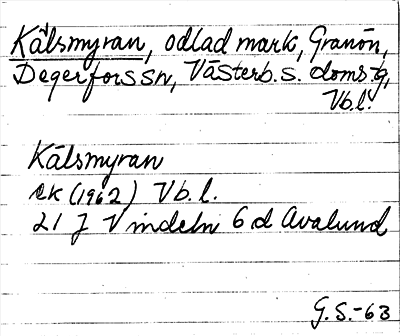 Kålsmyran, odlad mark, Granön,
Degerfors sn, Västerb. s. doms-g,
Vb.l.
Kålsmyran
ek (1962) Vb.l.
21 J Vindeln 6 d Avalund
G.S.-63